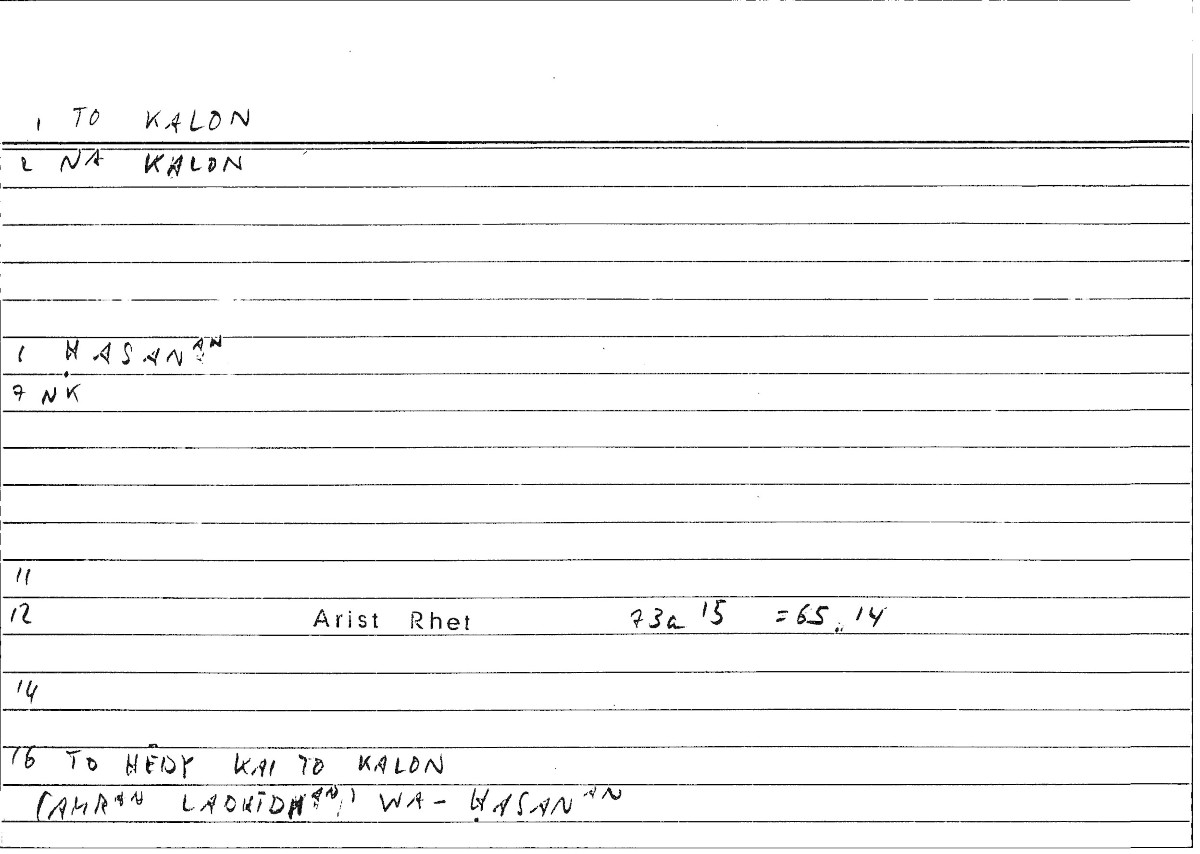 1 TO KALON
2 NA KALON
1 ḤASANᴬᴺ
7 NK
11
12 Arist Rhet 73a 15 =65,,14
14
16 TO HĒDY KAI TO KALON
(AMRᴬᴺ LADHĪDHᴬᴺ) WA- ḤASANᴬᴺ